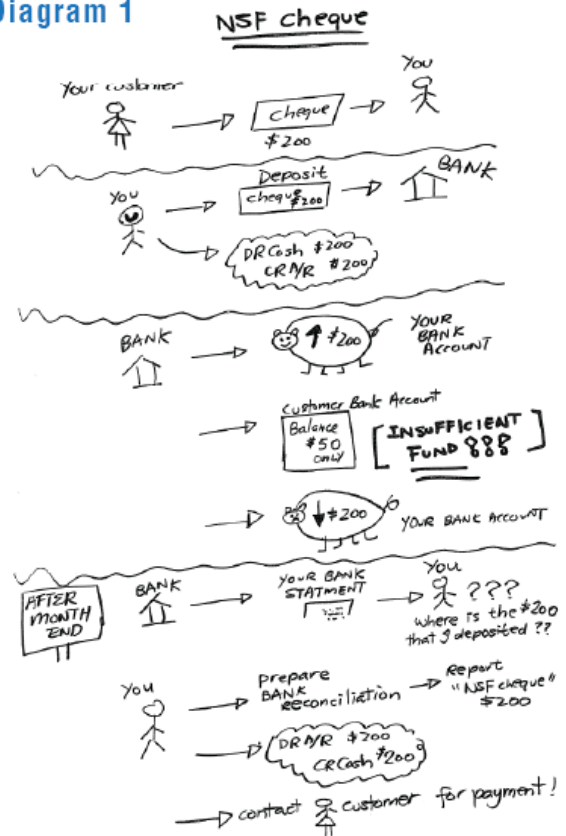 Diagram 1
NSF cheque
Your customer
You
cheque
$200
Deposit
You
cheque
$200
BANK
DR Cash $200
CR A/R $200
BANK
↑ $200
YOUR
BANK
ACCOUNT
Customer Bank Account
Balance
$50
only
[INSUFFICIENT
FUND !!!]
↓ $200
YOUR BANK ACCOUNT
AFTER
MONTH
END
BANK
YOUR BANK
STATMENT
You
???
where is the $200
that I deposited ??
You
prepare
BANK
reconciliation
Report
"NSF cheque"
$200
DR A/R $200
CR Cash $200
contact customer for payment!